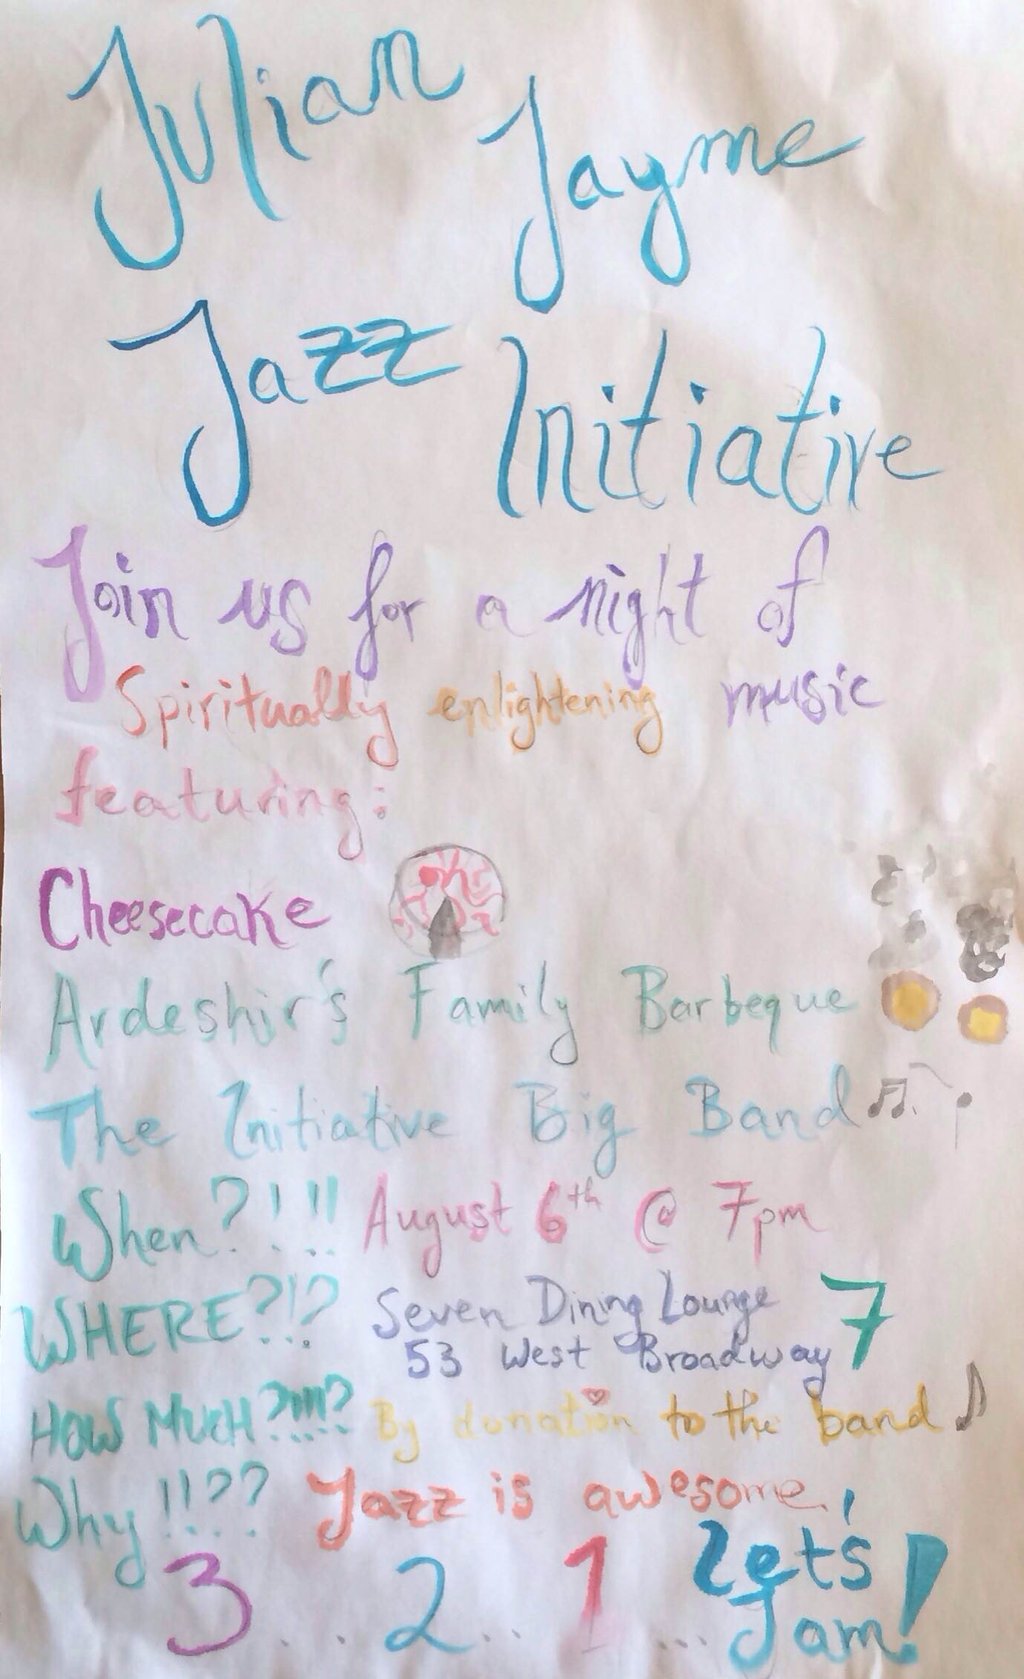 Julian Jayme
Jazz Initiative
Join us for a night of
Spiritually enlightening music
featuring:
Cheesecake
Ardeshir's Family Barbeque
The Initiative Big Band
When?!!! August 6th @ 7pm
WHERE?!? Seven Dining Lounge 7
53 West Broadway
HOW MUCH?!!!? By donation to the band
Why!!?? Jazz is awesome!
3... 2... 1... Let's
Jam!